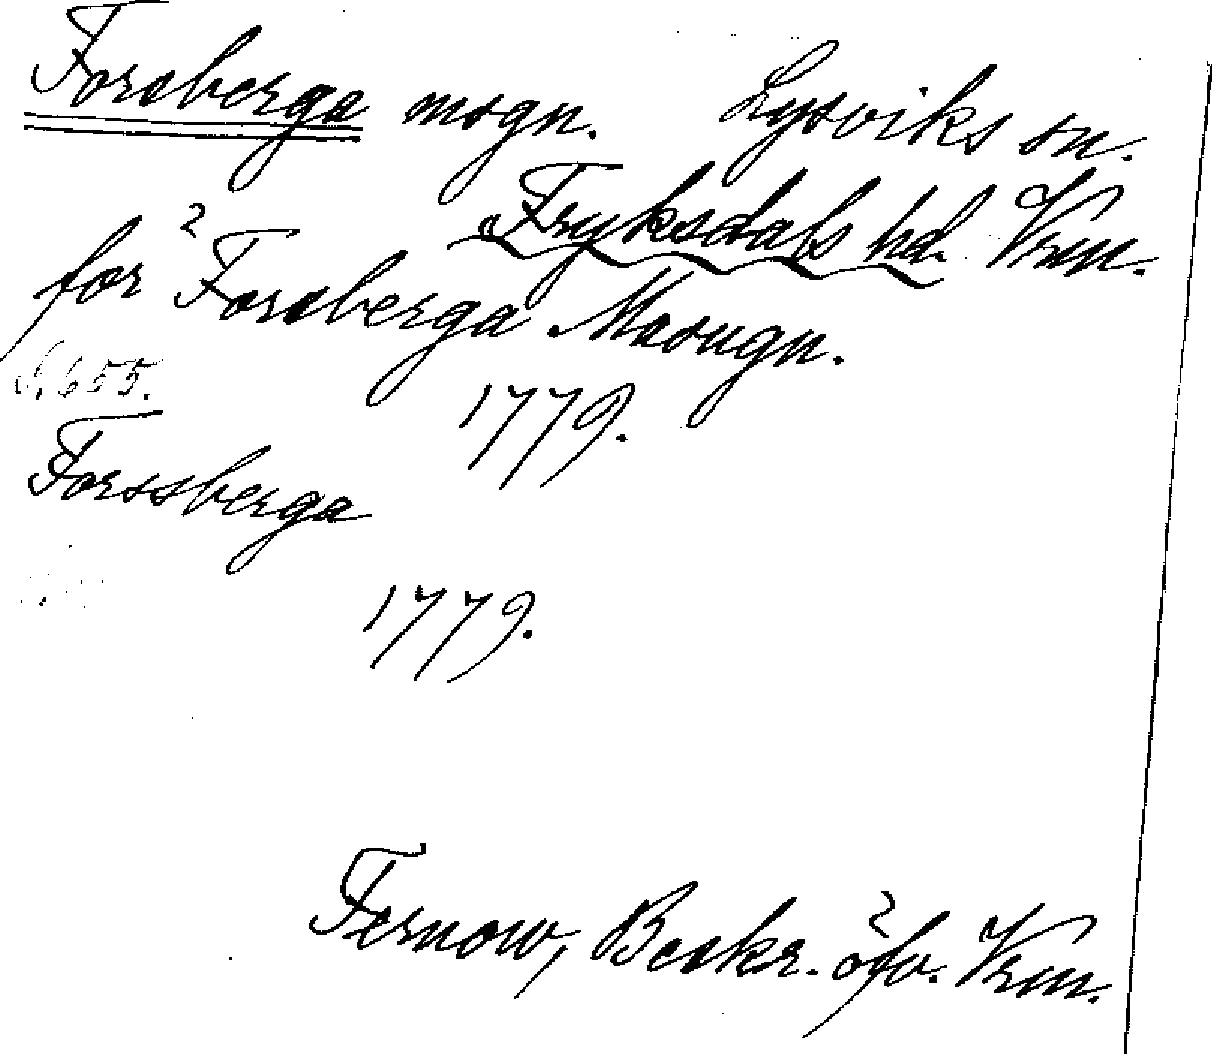 Forsberga msgn. Lysviks sn.
Fryksdals hd. Vrm.
för Forsberga Masugn.
S. 655. 1779.
Forssberga
1779.
Fernow, Beskr. öfv. Vrm.